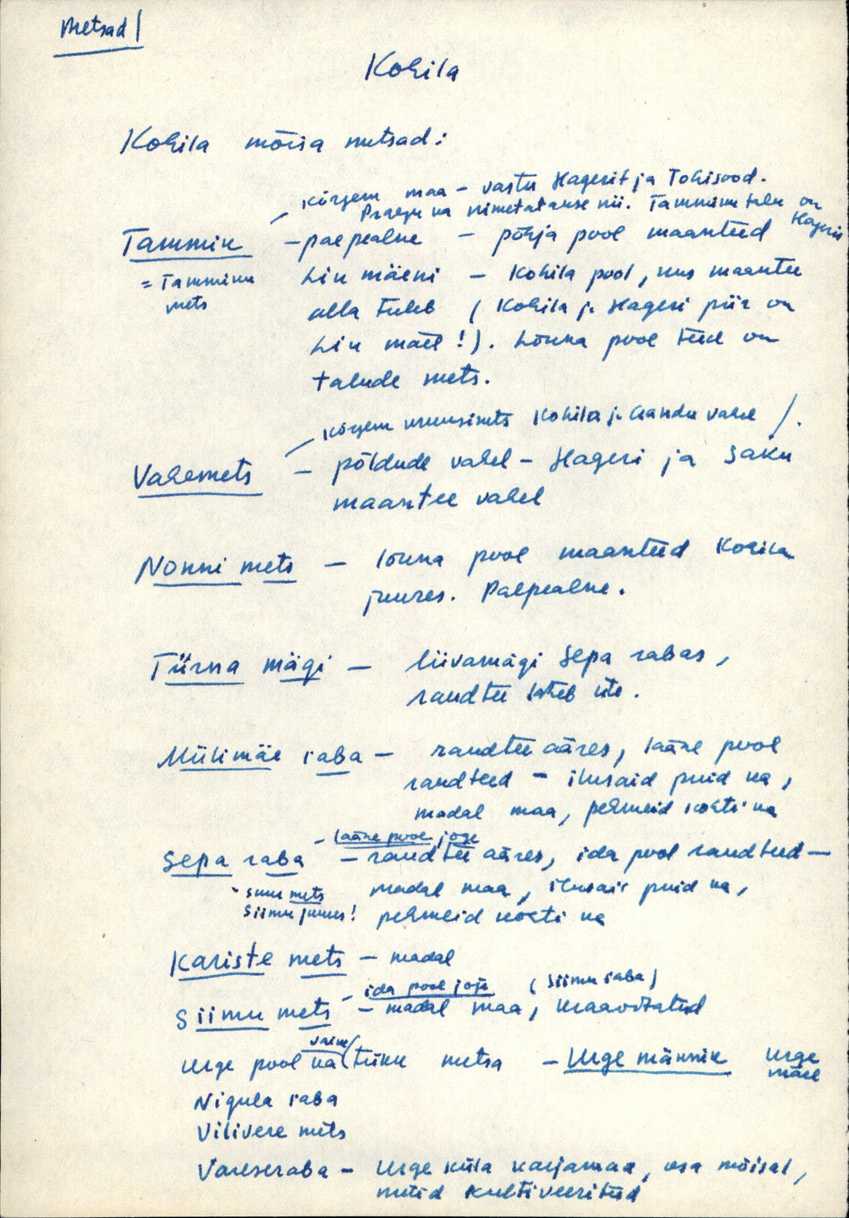 Metsad
Kohila
Kohila mõisa metsad:
kõrgem maa - vastu Hagerit ja Tohisood.
Praegu ka nimetatakse nii. Tammiku talu on
Hageris
Tammik - paepealne - põhja pool maanteed
= Tammiku mets
Liu mäeni - Kohila pool, kus maantee
alla tuleb (Kohila ja Hageri piir on
Liu mäel!). Lõuna pool teed on
talude mets.
kõrgem kuusimets Kohila ja vahel /.
Vahemets - põldude vahel - Hageri ja Saku
maantee vahel
Nonni mets - lõuna pool maanteed Kohila
juures. Paepealne.
Tiirna mägi - liivamägi Sepa rabas,
raudtee läheb üle.
Mülimäe raba - raudtee ääres, lääne pool
raudteed - ilusaid puid ka,
madal maa, pehmeid kohti ka
- lääne pool jõge
Sepa raba - raudtee ääres, ida pool raudteed -
- suur mets madal maa, ilusaid puid ka,
Siimu juures! pehmeid kohti ka
Kariste mets - madal
- ida pool jõge (Siimu raba)
Siimu mets - madal maa, kraavitatud
väike
Urge pool ka tükk metsa - Urge männik Urge
mäel
Nigula raba
Vilivere mets
Vareseraba - Urge küla karjamaa, osa mõisal,
nüüd kultiveeritud